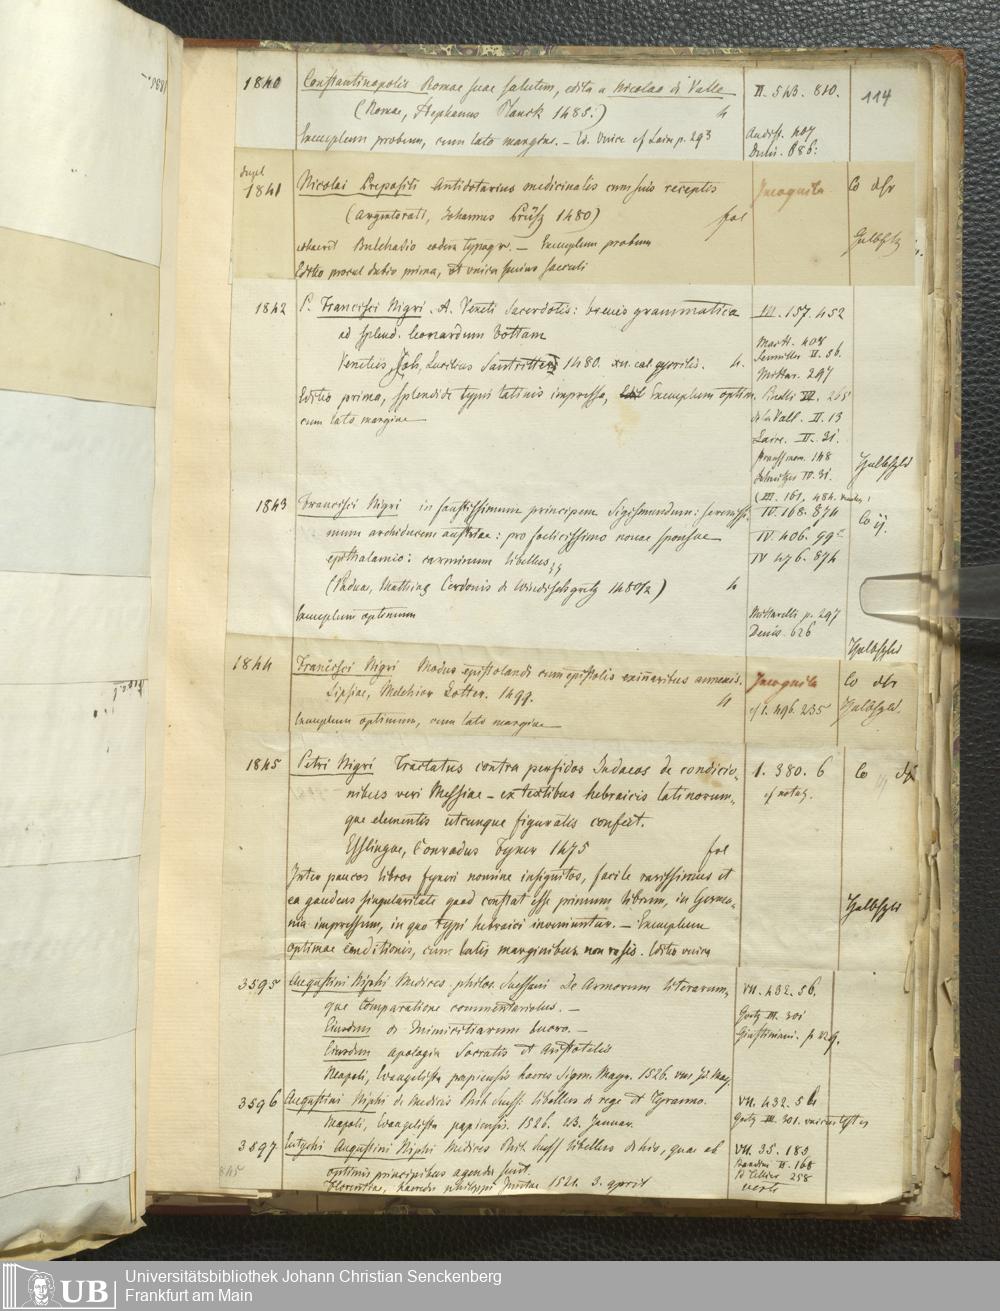 114
1840 Constantinopolis Romae suae salutem, edita a Nicolao di Valle II. 543. 810.
(Romae, Stephanus Planck 1485.) 4
Exemplum probum, cum lato margine. — Ed. unica cf Laire p. 293 Audiff. 407
Denis. 686:
dupl
1841 Nicolai Prepositi Antidotarius medicinalis cum suis receptis Incognita Co
(Argentorati, Johannes Prüss 1480) fol
eodem typogr. — Exemplum probum Halbfrz
Editio procul dubio prima, et unica hujus saeculi
1842 P. Francisci Nigri. A. Veneti Sacerdotis: brevis grammatica III. 157. 452
ad splend. Leonardum Bottam Maitt. 408
Venetiis, Joh. Lucilius Santritter 1480. XII. cal aprilis. 4. Semiller II. 56.
Mittar. 297
Editio prima, splendide typis latinis impressa, Exemplum optim. Pinelli 265
cum lato margine de la Vall. II. 13
Laire. II. 31.
148
IV. 31. Halbfrzbd
(III. 161, 484.
1843 Francisci Nigri in faustissimum principem Sigismundum: sereniss. IV. 168. 874 Co ij.
mum archiducem austriae: pro foelicissimo novae sponsae IV 406. 99
epithalamio: carminum libellus; IV 476. 874
(Padua, Matthias Cerdonis de Windischgretz 1480/2) 4
Exemplum optimum Mittarelli p. 297
Denis. 626
Halbfrzbd
1844 Francisci Nigri Modus epistolandi cum epistolis exinaribus annexis. Incognita Co
Lipsiae, Melchior Lotter. 1499. 4 cf I. 496. 235 Halbfrzbd.
Exemplum optimum, cum lato margine
1845 Petri Nigri Tractatus contra perfidos Judaeos de condicio- I. 380. 6 Co
nibus veri Messiae — ex textibus hebraicis latinorum- cf notas.
que elementis utcunque figuratis confect.
Esslingae, Conradus Fyner 1475 fol
Inter paucos libros Fyneri nomine insignitos, facile rarissimus et
ea gaudens singularitate quod constat esse primum librum, in Germa- Halbfrzbd
nia impressum, in quo typi hebraici inveniuntur. — Exemplum
optimae conditionis, cum latis marginibus non rasis. Editio unica
3595 Augustini Niphi Medices philos. Suessani De Armorum literarum- VII. 432. 56.
que comparatione commentariolus. — Goetz III. 301
Eiusdem de Inimicitiarum lucro. — Giustiniani.
Eiusdem apologia Socratis et Aristotelis
Neapoli, Evangelista papiensis haeres Sigm. Mayr. 1526.
3596 Augustini Niphi de Medicis Phil. Suess. libellus de rege et Tyranno. VII. 432. 56
Neapoli, Evangelista papiensis. 1526. 23. Januar. Goetz III. 301.
3597 Eutychi Augustini Niphi Medices Phil. Suess libellus de his, quae ab VII. 35. 189
optimis principibus agenda sunt. Bandini II. 168
Florentiae, haeredes Philippi Juntae 1521. 3. april 258
verte
845
Universitätsbibliothek Johann Christian Senckenberg
Frankfurt am Main
UB